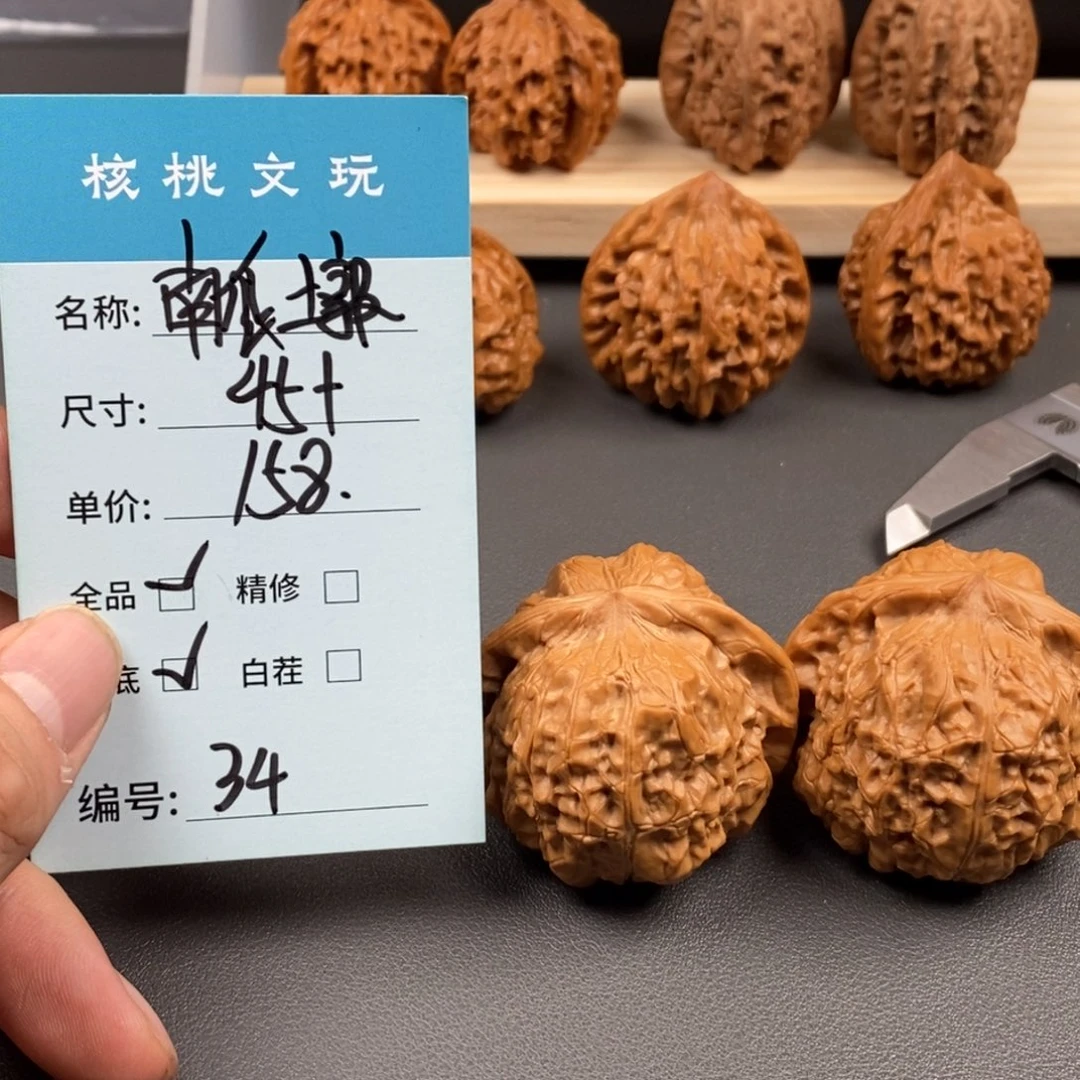 核桃文玩
名称: 南疆土墩
尺寸: 45+
单价: 158.
全品 ✓ 精修 □
底 ✓ 白茬 □
编号: 34